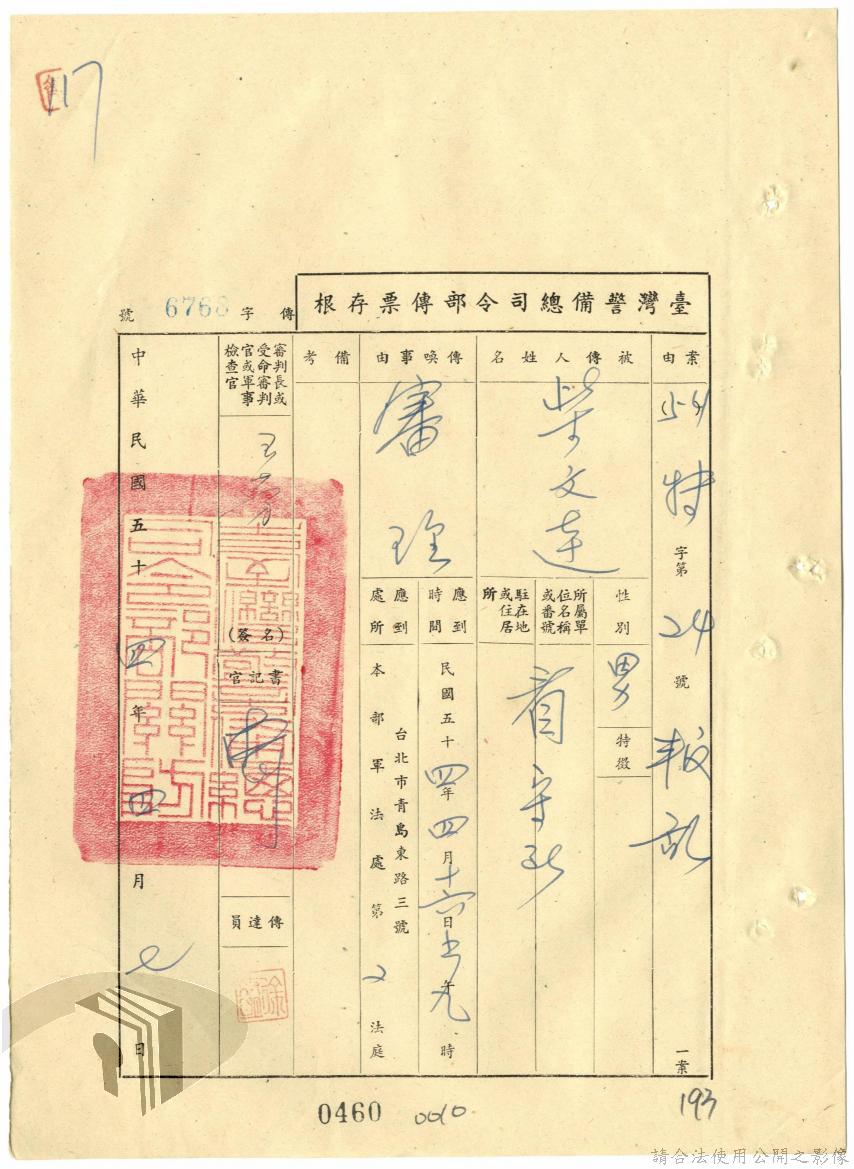 117
臺灣警備總司令部傳票存根
傳字 6768 號
案由
特字第24號叛亂一案
被傳人姓名
柴文達
性別
男
特徵
所屬單位名稱或番號
駐在地或住居所
看守所
傳喚事由
審理
應到時間
民國五十四年四月十六日上午九時
應到處所
台北市青島東路三號
本部軍法處第2法庭
備考
審判長或受命審判官或軍事檢查官
(簽名)
書記官
傳達員
中華民國五十四年四月七日
0460
0010
193
請合法使用公開之影像